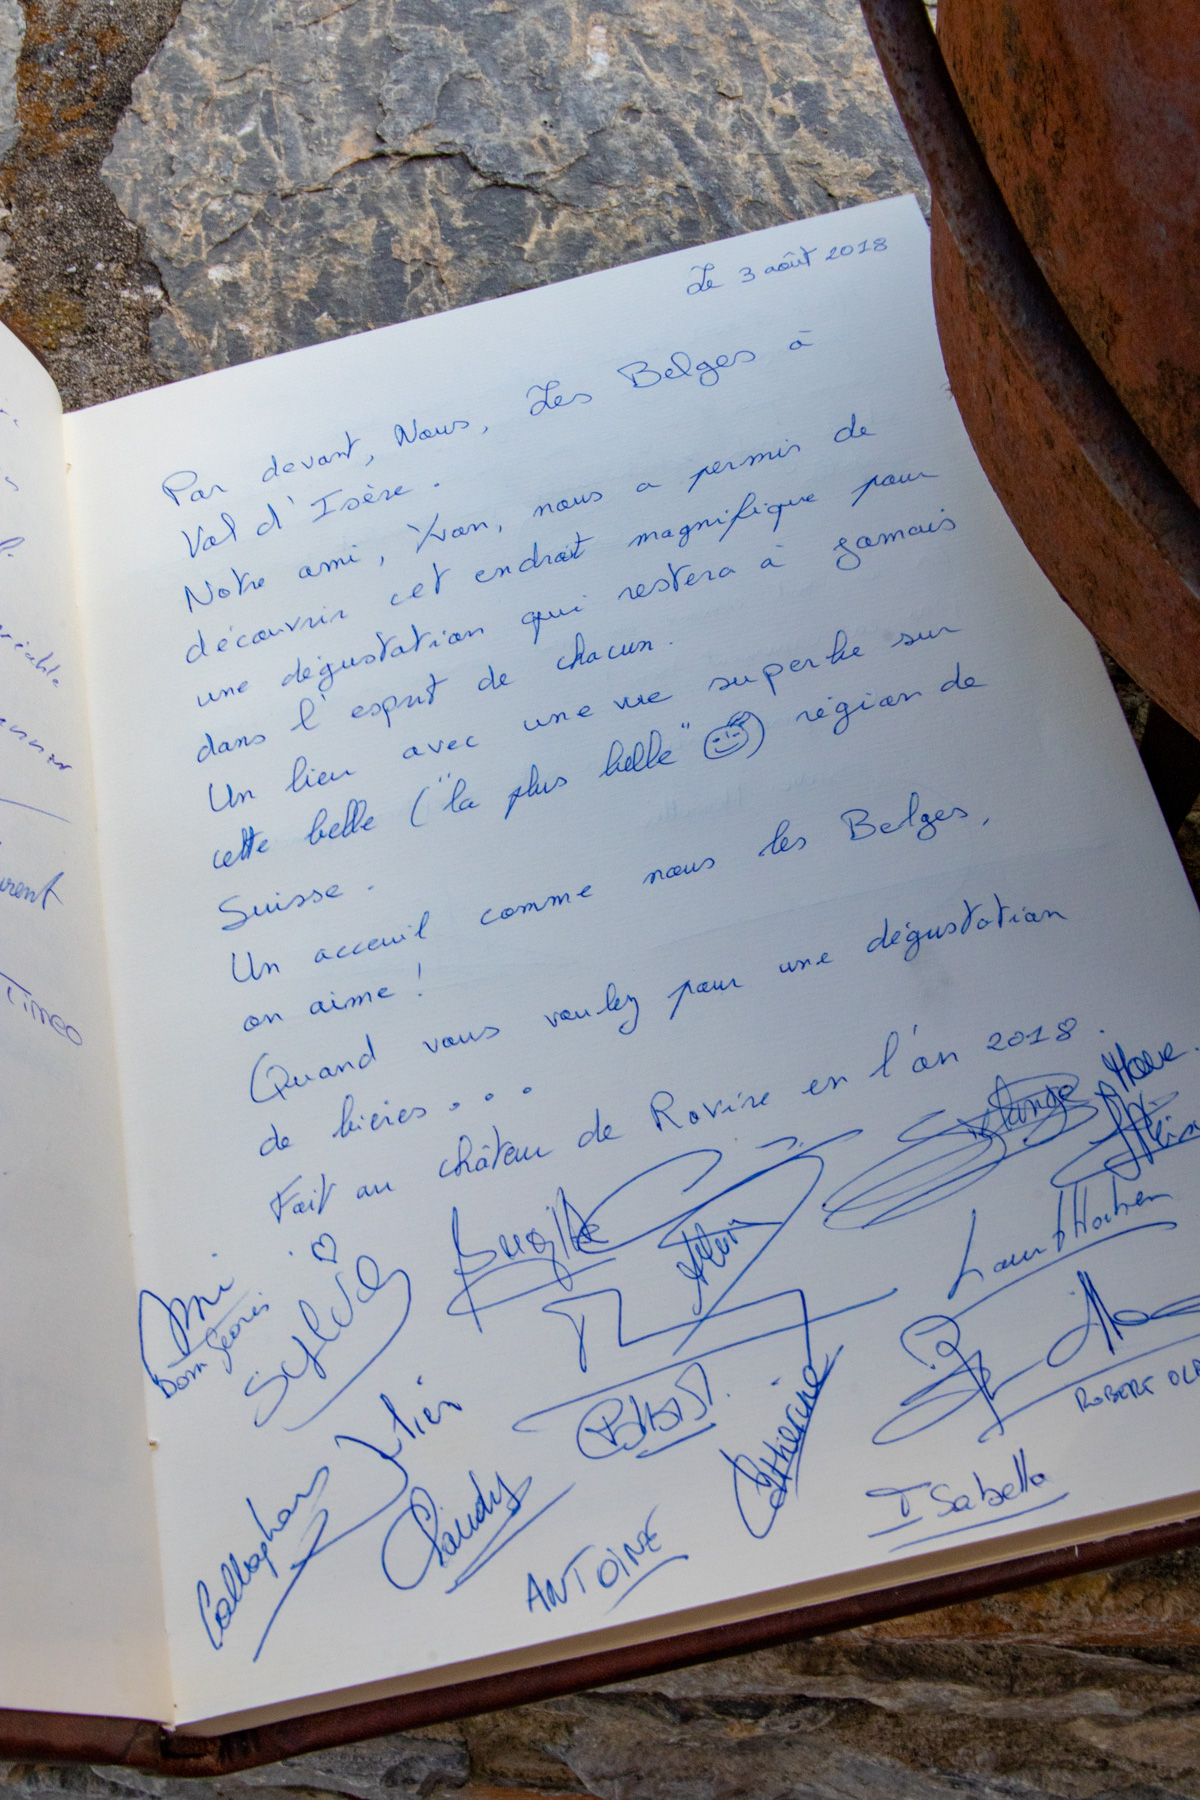 Le 3 août 2018
Par devant, Nous, Les Belges à
Val d'Isère.
Notre ami, Yvan, nous a permis de
découvrir cet endroit magnifique pour
une dégustation qui restera à jamais
dans l'esprit de chacun.
Un lieu avec une vue superbe sur
cette belle ("la plus belle" ) région de
Suisse.
Un acceuil comme nous les Belges,
on aime !
Quand vous voulez pour une dégustation
de bières...
Fait au château de Ravire en l'an 2018.
Solange
Brigitte
Sylvia
Julien
Callaghan
Claudy
ANTOINE
Catherine
ISabella
ROBERT
éable
Timeo